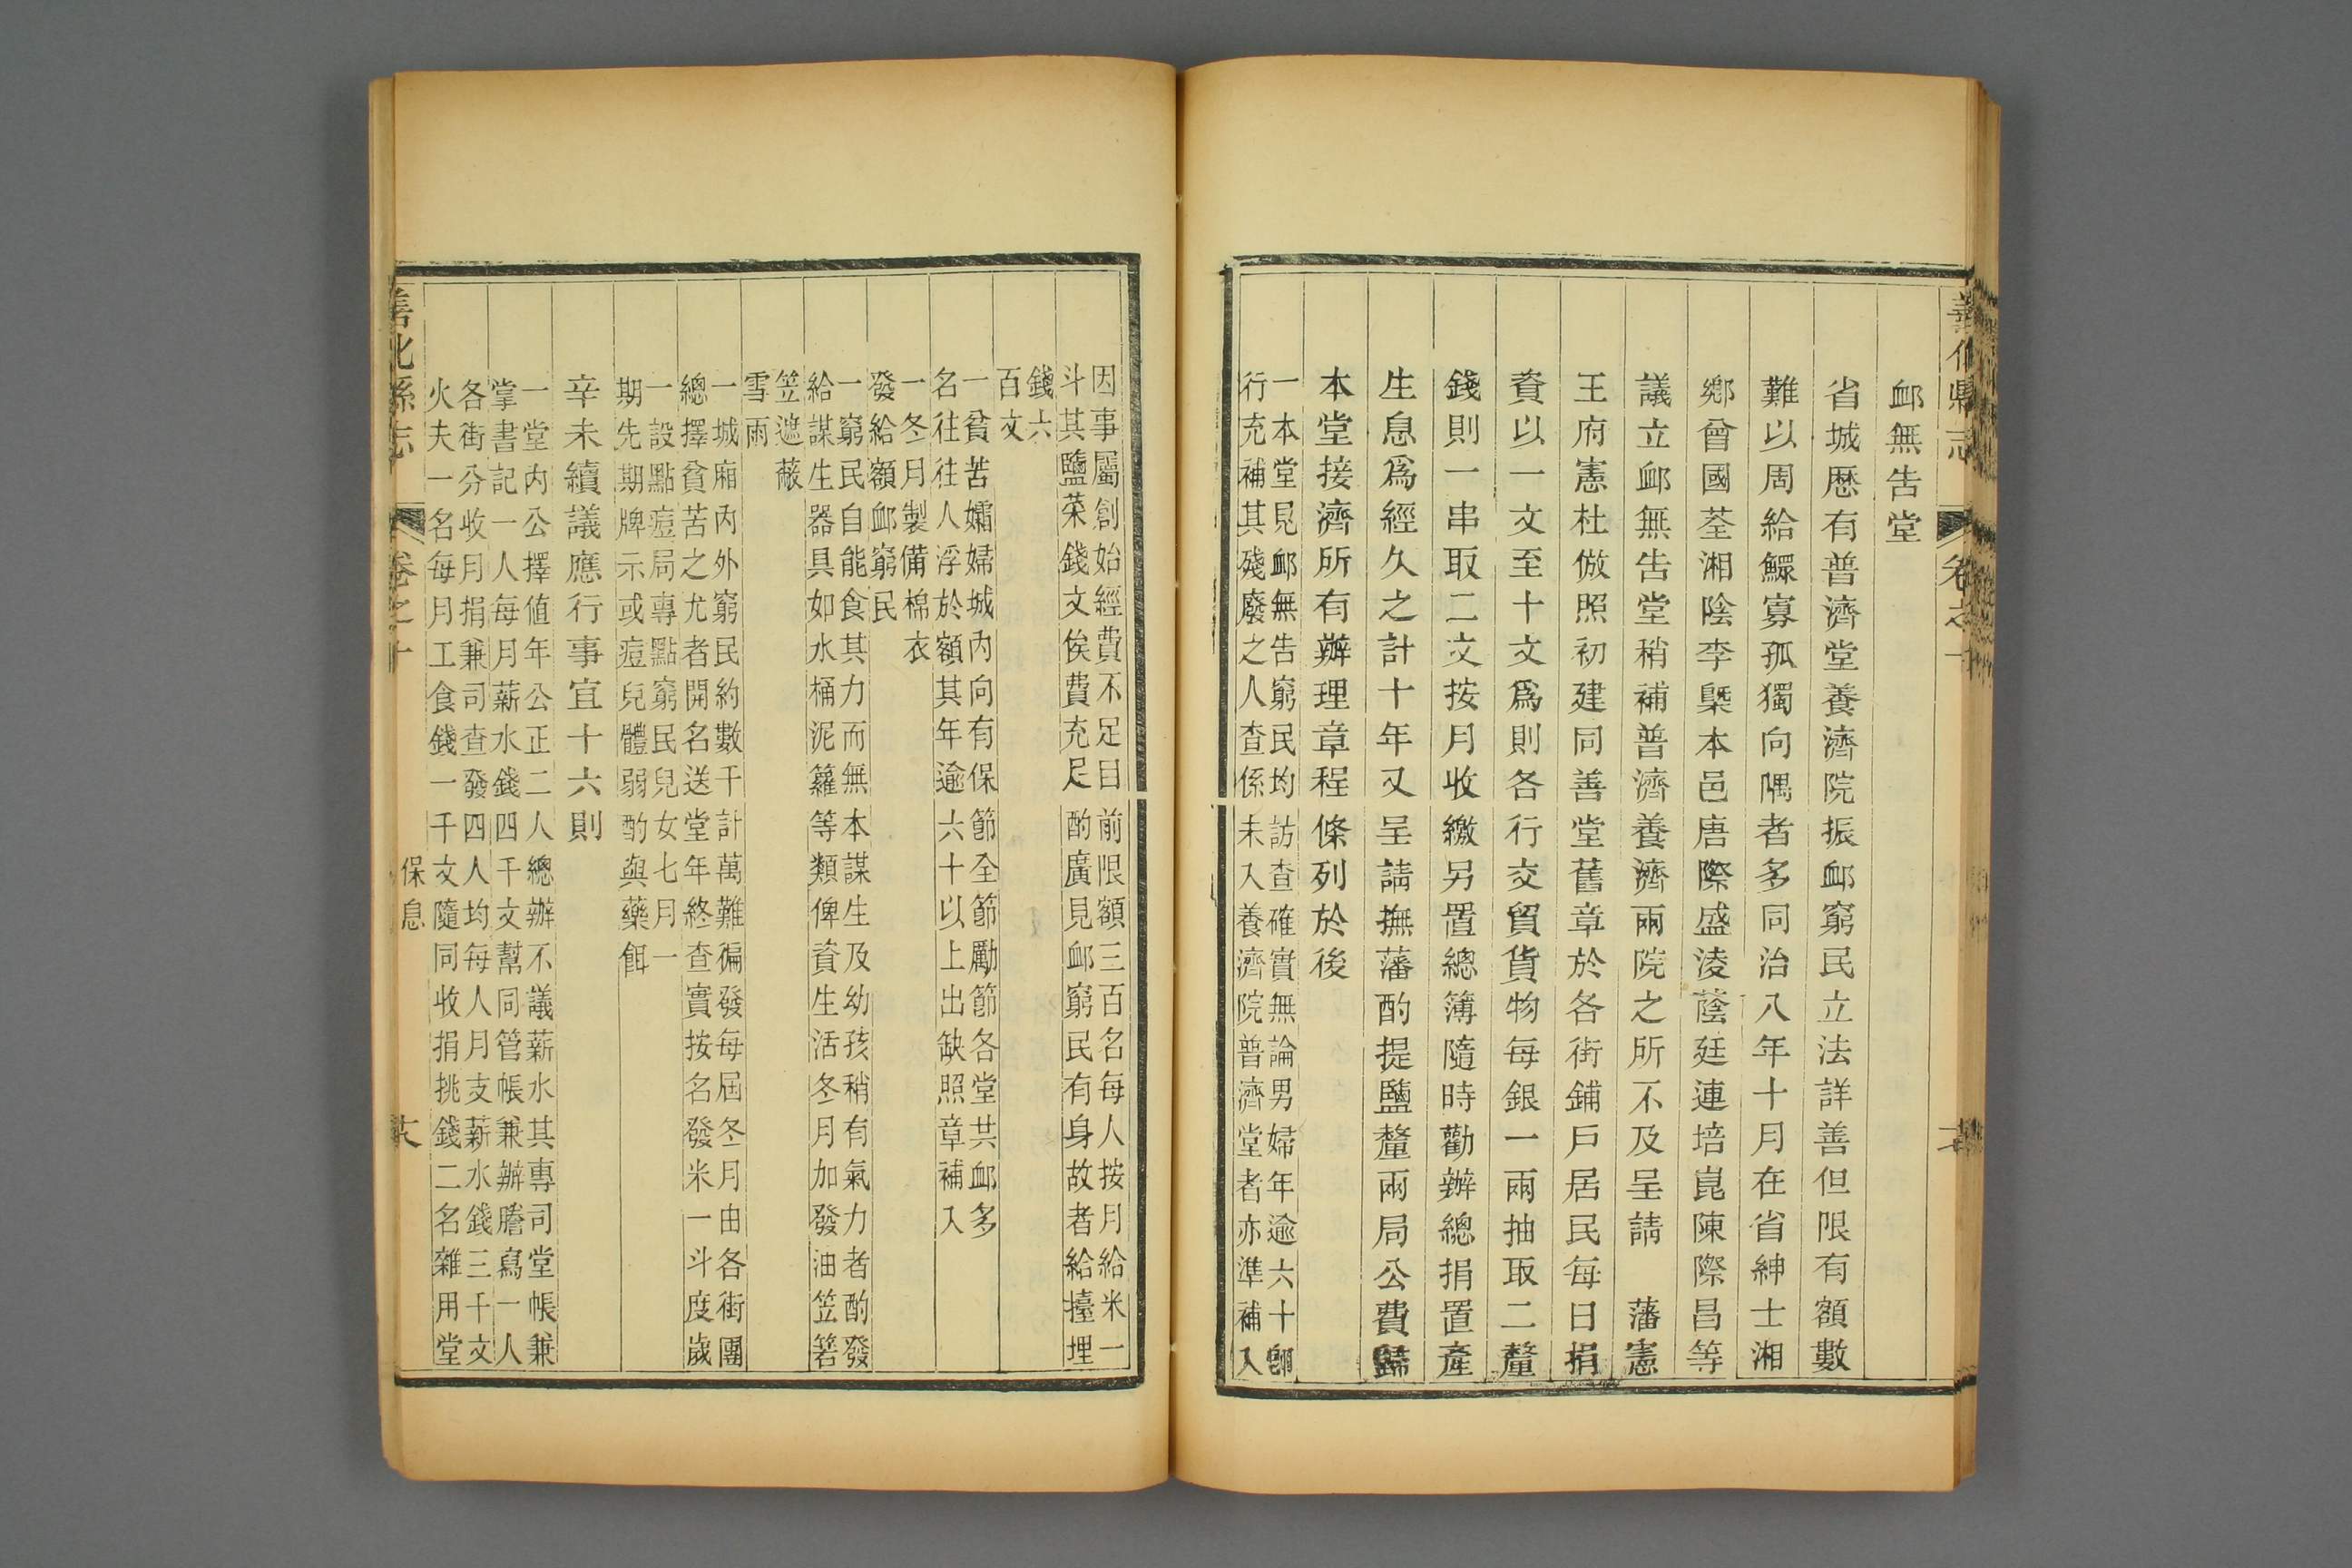 卹無告堂
省城歷有普濟堂養濟院振卹窮民立法詳善但限有額數
難以周給鰥寡孤獨向隅者多同治八年十月在省紳士湘
鄉曾國荃湘陰李㮣本邑唐際盛淩蔭廷連培崑陳際昌等
議立卹無告堂稍補普濟養濟兩院之所不及呈請　藩憲
王府憲杜倣照初建同善堂舊章於各街鋪戶居民每日捐
資以一文至十文爲則各行交貿貨物每銀一兩抽取二釐
錢則一串取二文按月收繳另置總簿隨時勸辦總捐置產
生息爲經久之計十年又呈請撫藩酌提鹽釐兩局公費歸
本堂接濟所有辦理章程條列於後
一本堂見卹無告窮民均訪查確實無論男婦年逾六十卽
行充補其殘廢之人查係未入養濟院普濟堂者亦準補入
因事屬創始經費不足目前限額三百名每人按月給米一
斗其鹽菜錢文俟費充足酌廣見卹窮民有身故者給擡埋
錢六
百文
一貧苦孀婦城內向有保節全節勵節各堂共卹多
名往往人浮於額其年逾六十以上出缺照章補入
一冬月製備棉衣
發給額卹窮民
一窮民自能食其力而無本謀生及幼孩稍有氣力者酌發
給謀生器具如水桶泥籮等類俾資生活冬月加發油笠箬
笠遮蔽
雪雨
一城廂內外窮民約數千計萬難徧發每屆冬月由各街團
總擇貧苦之尤者開名送堂年終查實按名發米一斗度歲
一設點痘局專點窮民兒女七月一
期先期牌示或痘兒體弱酌與藥餌
辛未續議應行事宜十六則
一堂內公擇值年公正二人總辦不議薪水其專司堂帳兼
掌書記一人每月薪水錢四千文幫同管帳兼辦謄寫一人
各街分收月捐兼司查發四人均每人月支薪水錢三千文
火夫一名每月工食錢一千文隨同收捐挑錢二名雜用堂
善化縣志　卷之十　保息